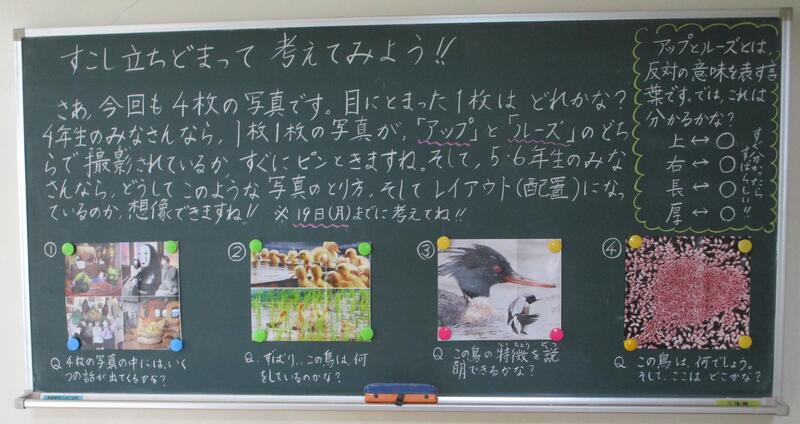 すこし立ちどまって 考えてみよう!!
さあ,今回も4枚の写真です。目にとまった1枚は どれかな?
4年生のみなさんなら,1枚1枚の写真が,「アップ」と「ルーズ」のどち
らで撮影されているか,すぐにピンときますね。そして,5・6年生のみな
さんなら,どうして このような 写真のとり方,そして レイアウト(配置)になっ
ているのか,想像できますね!! ※19日(月)までに考えてね!!
アップとルーズとは,
反対の意味を表す言
葉です。では,これは
分かるかな?
上 ↔ ○
右 ↔ ○
長 ↔ ○
厚 ↔ ○
すぐ分かったら
すばらしい!!
①
Q 4枚の写真の中には,いく
つの話が出てくるかな?
②
Q.ずばり,..この鳥は,何
をしているのかな?
③
Q この鳥の特徴を説
とくちょう
せつ
明できるかな?
④
Q この鳥は,何でしょう。
そして,ここは どこかな?